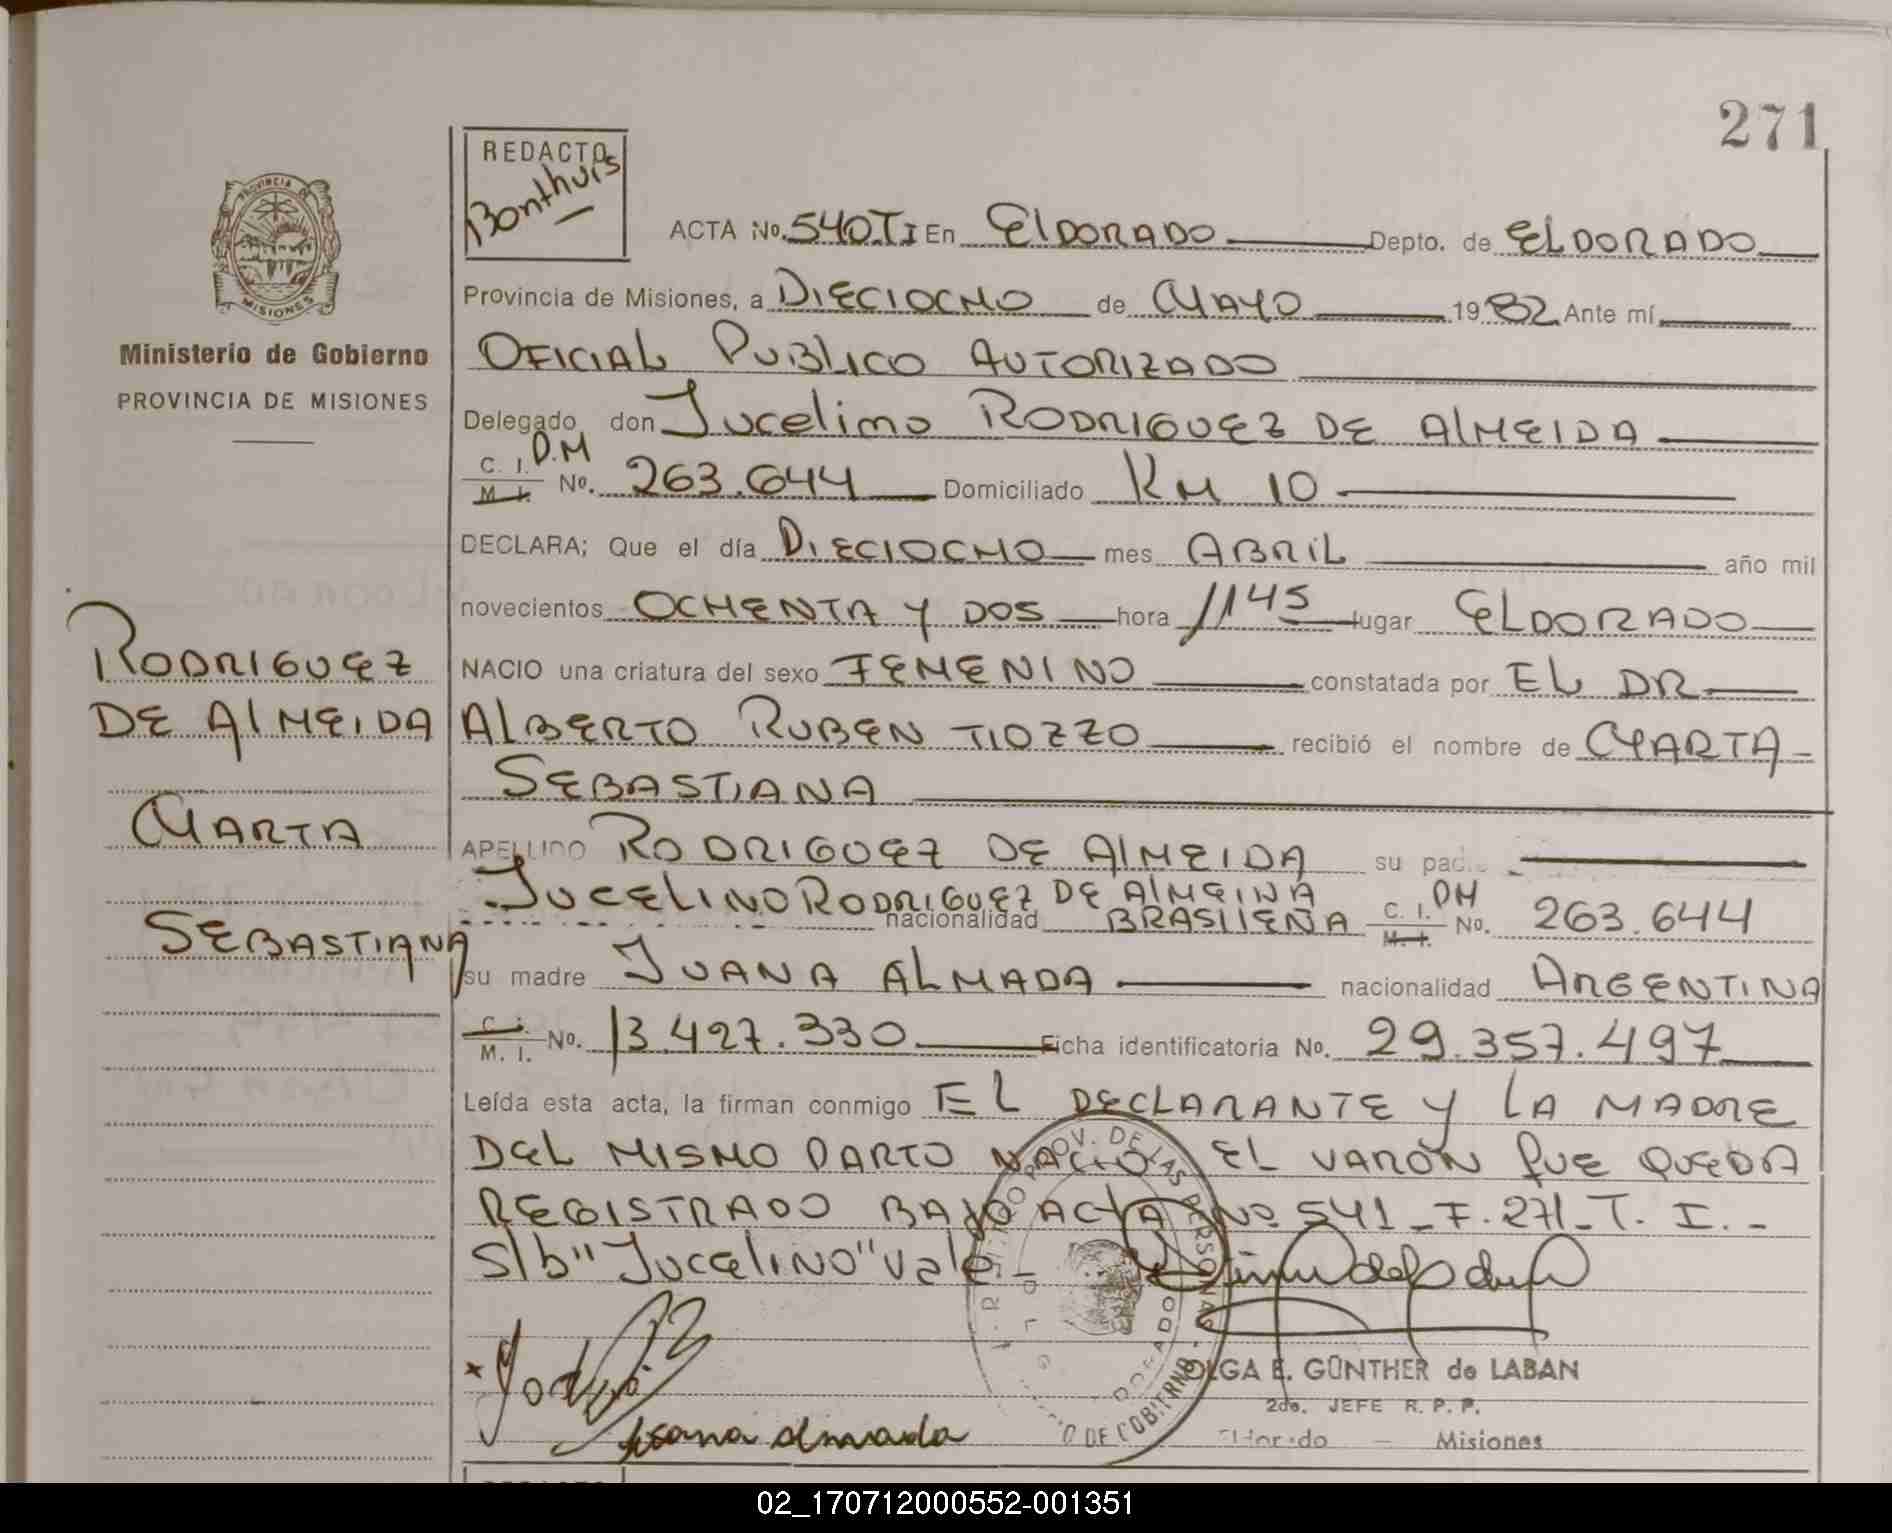 271
REDACTO
Bonthuis
PROVINCIA DE
MISIONES
Ministerio de Gobierno
PROVINCIA DE MISIONES
ACTA No. 540.TI En ELDORADO Depto. de ELDORADO
Provincia de Misiones, a DIECIOCHO de MAYO 1982 Ante mí
OFICIAL PUBLICO AUTORIZADO
Delegado don Jucelimo RODRIGUEZ DE AlMEIDA
C. I. D.M
M. I. No. 263.644 Domiciliado KM 10
DECLARA; Que el día DIECIOCHO mes ABRIL año mil
novecientos OCHENTA Y DOS hora 1145 lugar ELDORADO
NACIO una criatura del sexo FEMENINO constatada por EL DR
ALBERTO RUBEN TIOZZO recibió el nombre de MARTA
SEBASTIANA
APELLIDO RODRIGUEZ DE AlMEIDA su padre
JUCELINO RODRIGUEZ DE AlMEIDA
nacionalidad BRASILEÑA C. I. DM M. I. No. 263.644
su madre JUANA ALMADA nacionalidad ARGENTINA
C. I. M. I. No. 13.427.330 Ficha identificatoria No. 29.357.497
Leída esta acta, la firman conmigo EL DECLARANTE Y LA MADRE
DEL MISMO PARTO NACIO EL VARON QUE QUEDA
REGISTRADO BAJO ACTA No. 541-F.271-T.I.-
S/b "JUCELINO" Vale -
RODRIGUEZ
DE AlMEIDA
MARTA
SEBASTIANA
PROV. DE LAS PERSONAS
DE GOBIERNO
Juana almada
OLGA E. GÜNTHER de LABAN
2da. JEFE R. P. P.
Eldorado - Misiones
02_170712000552-001351